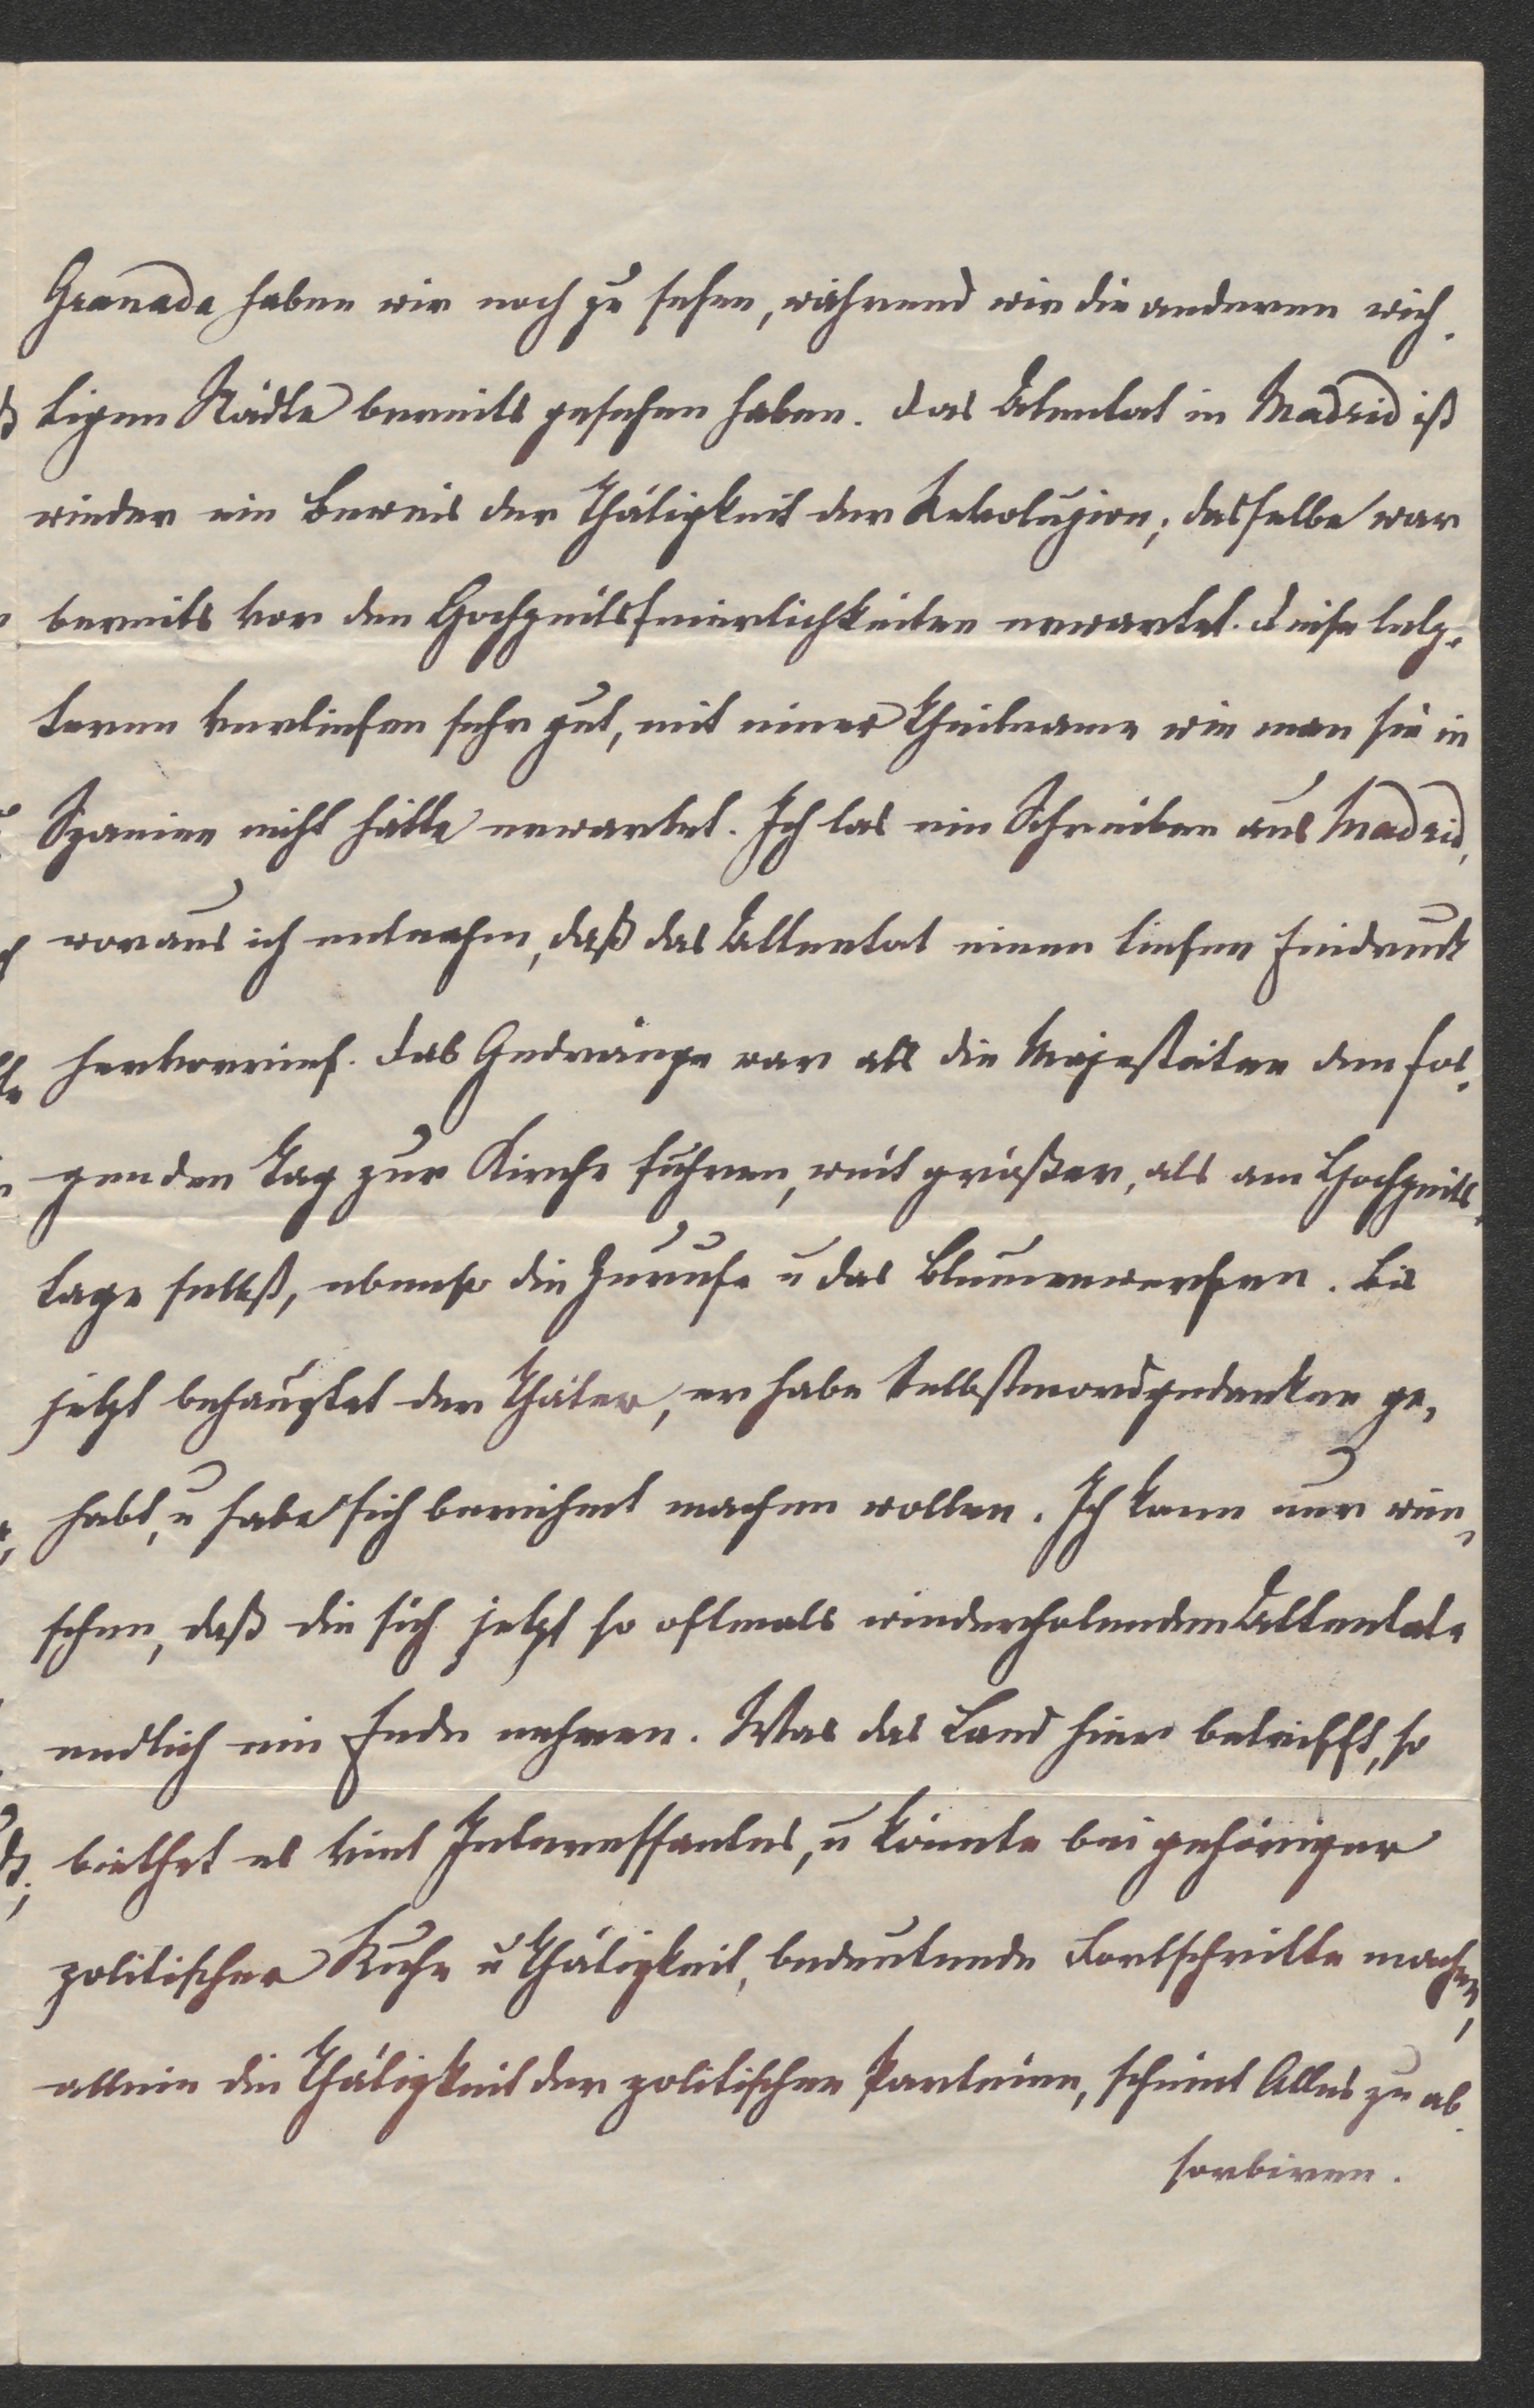 Granada haben wir noch zu sehen, während wir die anderen wich-
tigen Städte bereits gesehen haben. Das Atentat in Madrid ist
wieder ein Beweis der Thätigkeit der Revoluzion; dasselbe war
bereits vor den Hochzeitsfeierlichkeiten erwartet. Diese letz-
teren verliefen sehr gut, mit einer Theilname wie man sie in
Spanien nicht hätte erwartet. Ich las ein Schreiben aus Madrid,
woraus ich entnehme, daß das Attentat einen tiefen Eindruck
hervorrief. Das Gedränge war als die Majestäten den fol-
genden Tag zur Kirche fuhren, weit größer, als am Hochzeits-
tage selbst, ebenso die Zurufe u das Blumenwerfen. Bis
jetzt behauptet der Thäter, er habe Selbstmordgedanken ge-
habt, u habe sich berühmt machen wollen. Ich kann nur wün-
schen, daß die sich jetzt so oftmals wiederholenden Attentate
endlich ein Ende nehmen. Was das Land hier betrifft, so
biethet es viel Interessantes, u könnte bei gehöriger
politischer Ruhe u Thätigkeit, bedeutende Fortschritte machen,
allein die Thätigkeit der politischen Parteien, scheint Alles zu ab-
sorbiren.